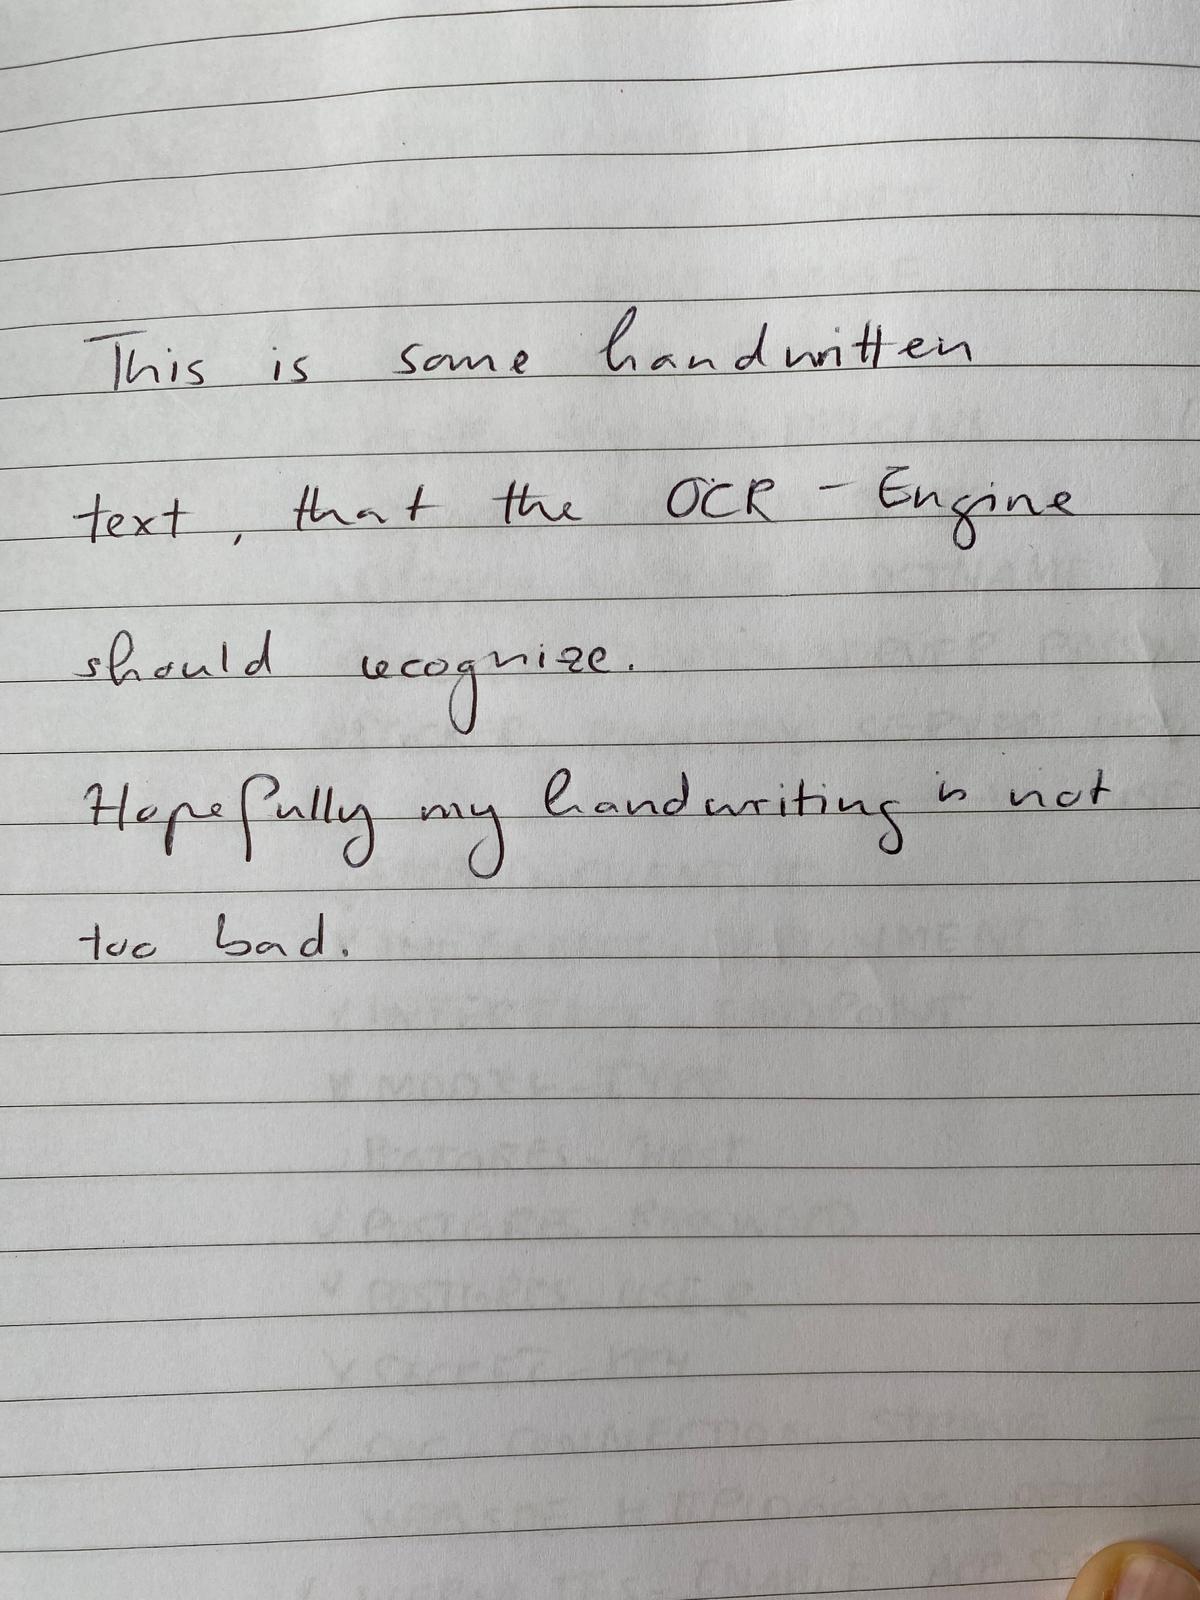 This is some handwritten
text, that the OCR - Engine
should recognize.
Hopefully my handwriting is not
too bad.